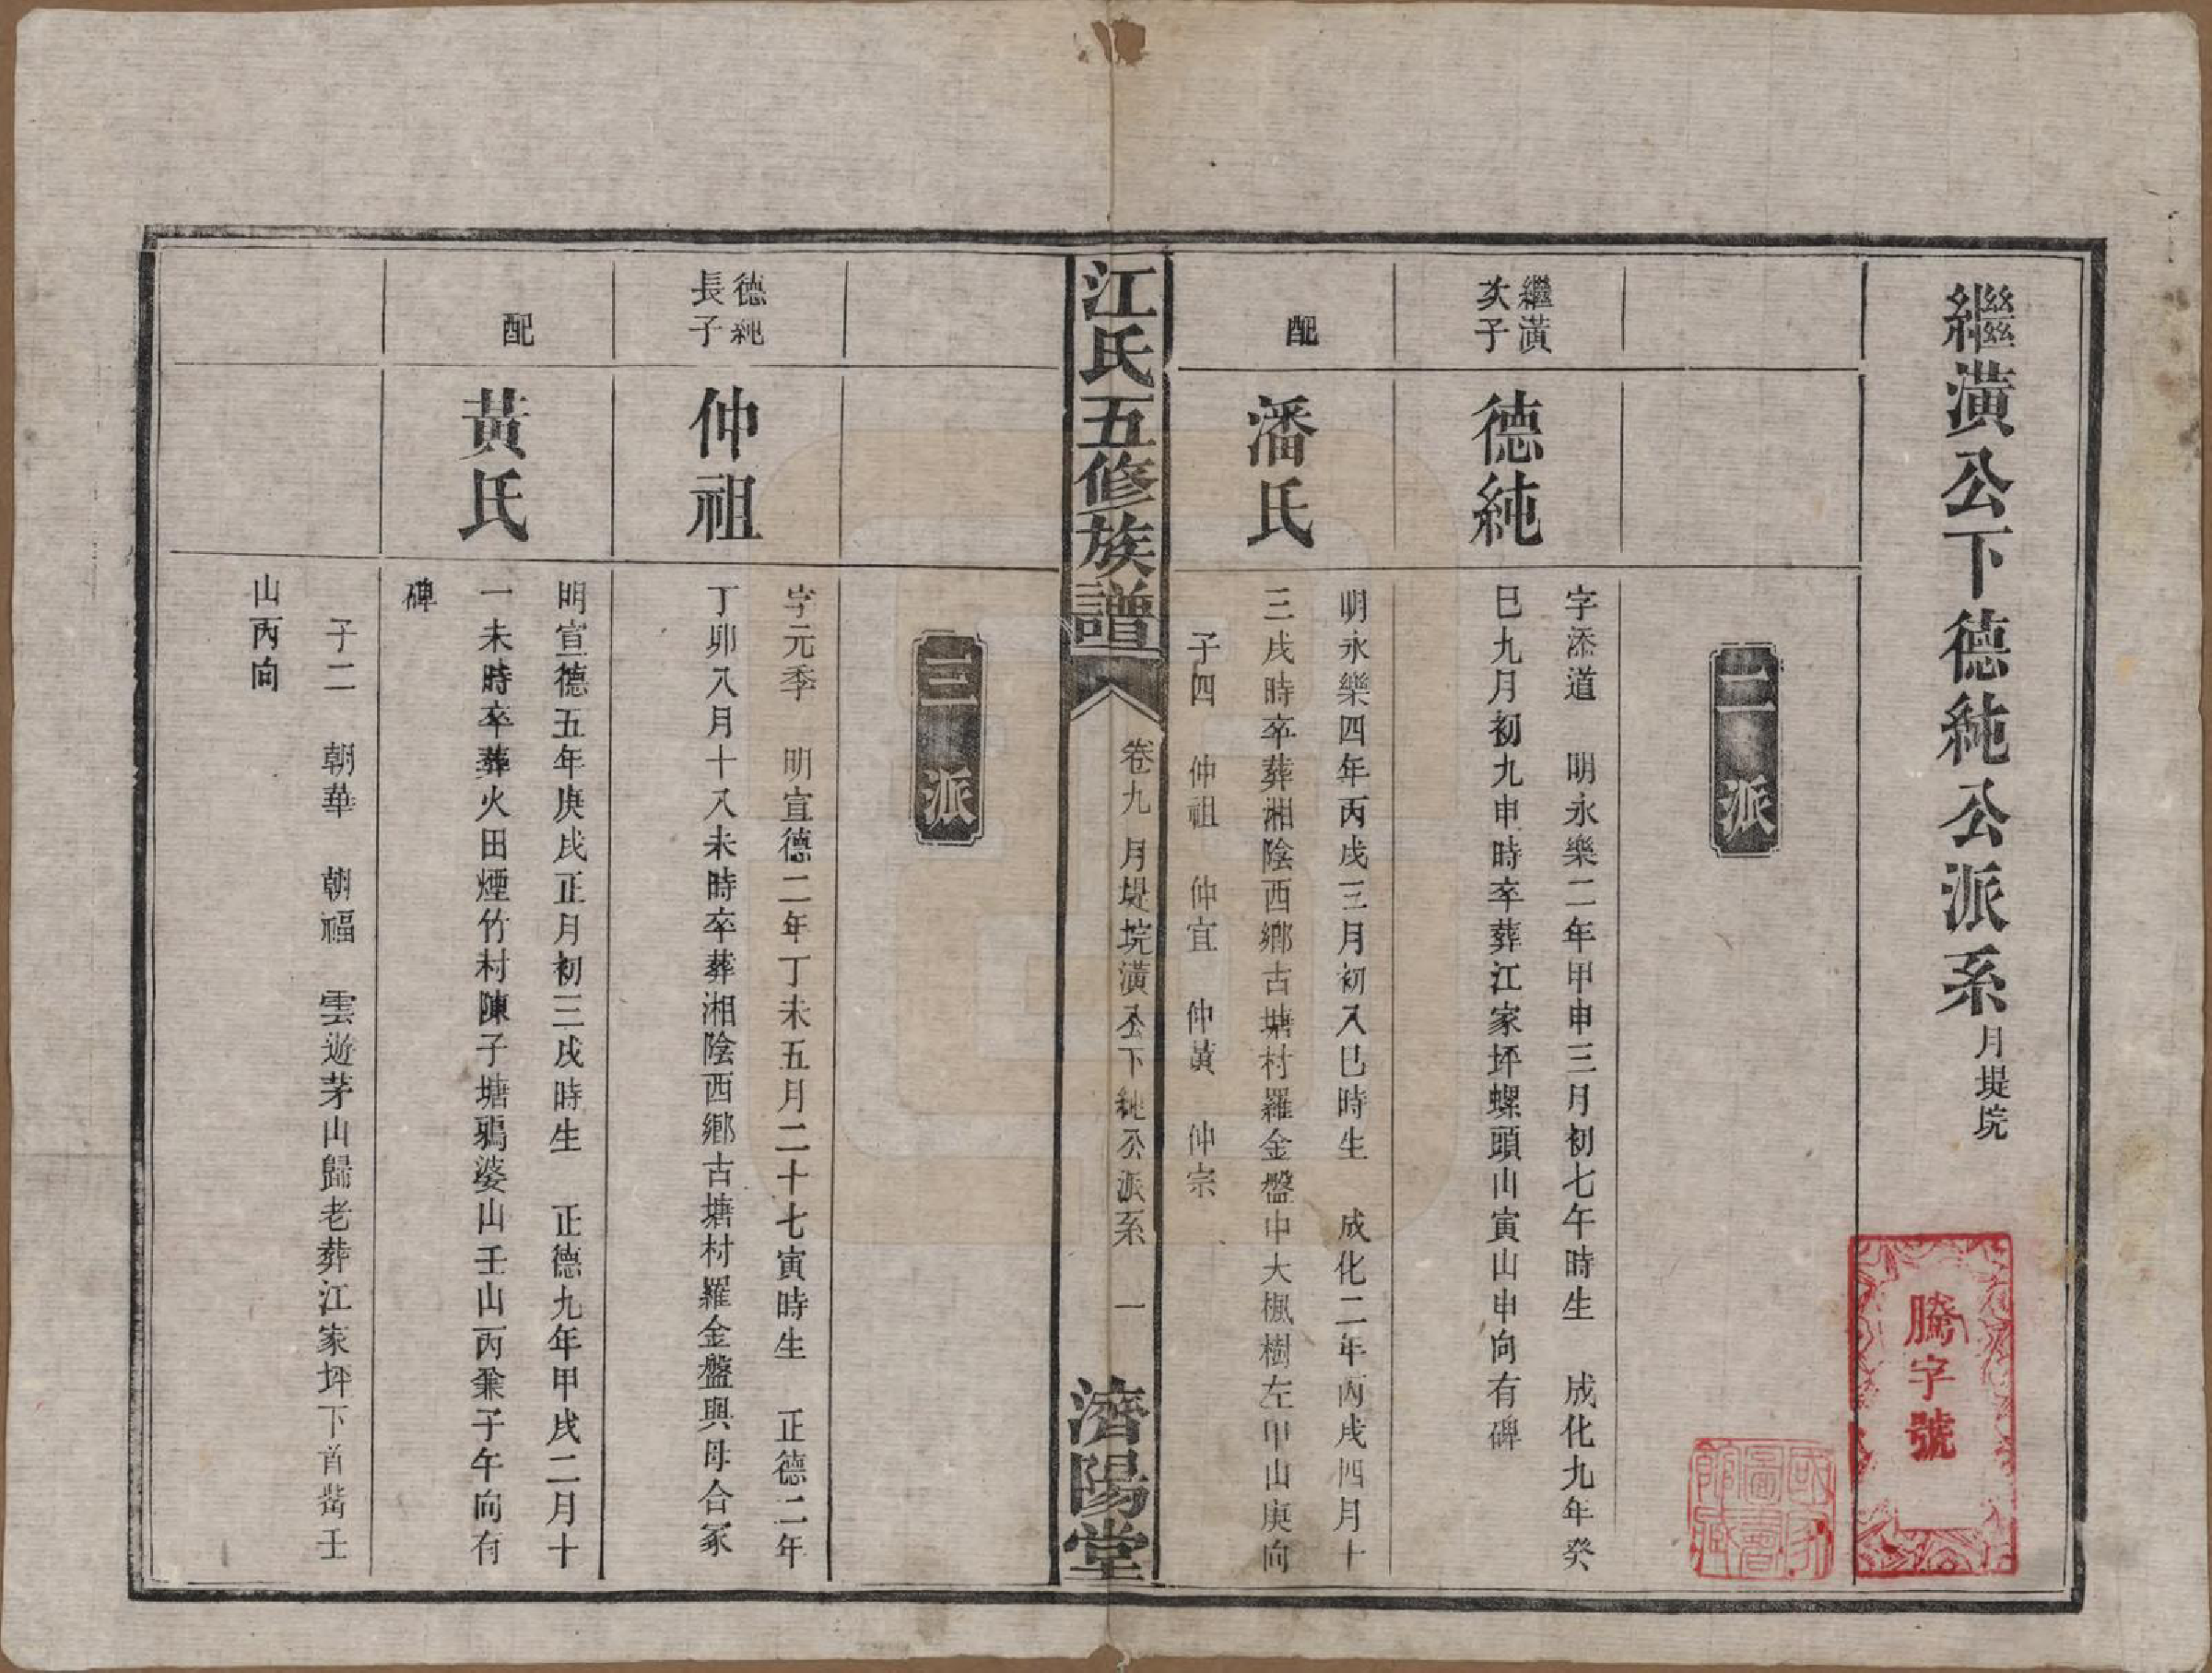 繼潢公下德純公派系月堤院
騰字號
國家圖書館藏
二派
繼潢
次子
德純
字添道　明永樂二年甲申三月初七午時生　成化九年癸
巳九月初九申時卒葬江家坪螺頭山寅山申向有碑
配
潘氏
明永樂四年丙戌三月初八巳時生　成化二年丙戌四月十
三戌時卒葬湘陰西鄉古塘村羅金盤中大楓樹左甲山庚向
子四　仲祖　仲宜　仲黃　仲宗
江氏五修族譜
卷九　月堤垸潢公下純公派系　一
濟陽堂
三派
德純
長子
仲祖
字元季　明宣德二年丁未五月二十七寅時生　正德二年
丁卯八月十八未時卒葬湘陰西鄉古塘村羅金盤與母合冢
配
黃氏
明宣德五年庚戌正月初三戌時生　正德九年甲戌二月十
一未時卒葬火田煙竹村陳子塘鴉婆山壬山丙兼子午向有
碑
子二　朝華　朝福　雲遊茅山歸老葬江家坪下首嵩壬
山丙向